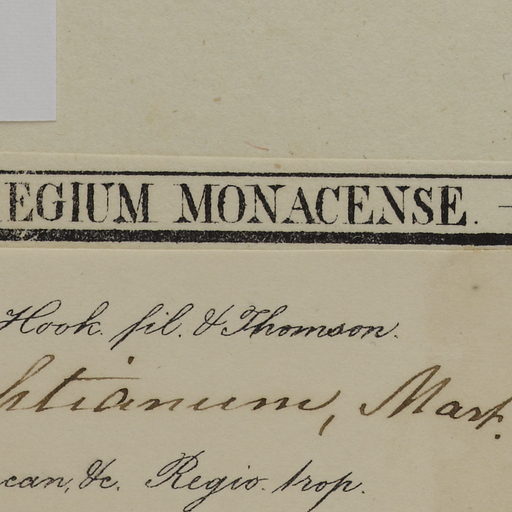 EGIUM MONACENSE. —
Hook. fil. & Thomson.
htianum, Mart.
can, &c. Regio. trop.